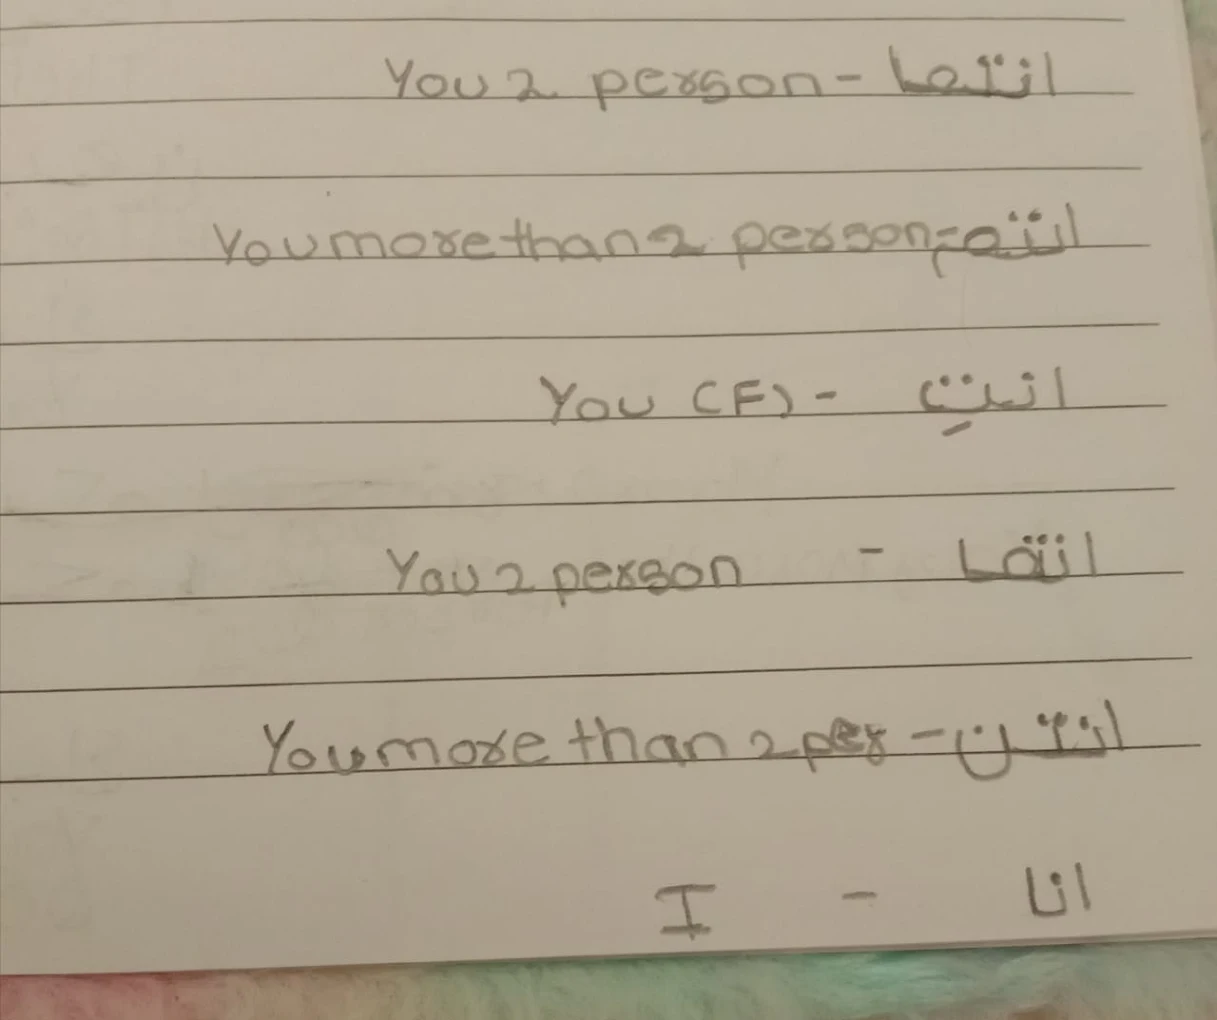 You 2 person - انتما
You more than 2 person - انتم
You (F) - انتِ
You 2 person - انتما
You more than 2 per - انتن
I - انا